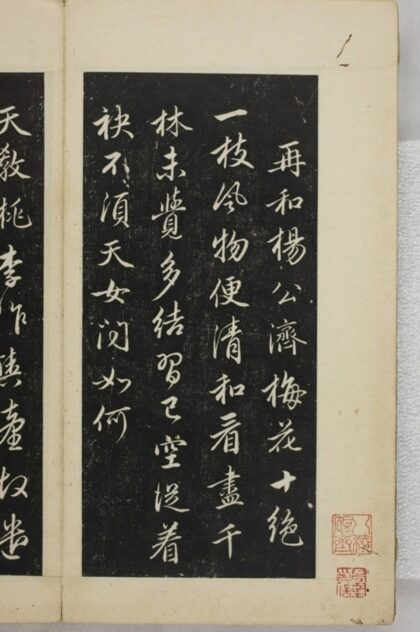 再和楊公濟梅花十絕
一枝風物便清和看盡千
林未覺多結習已空從着
袂不須天女問如何
天教桃李作輿臺故遣